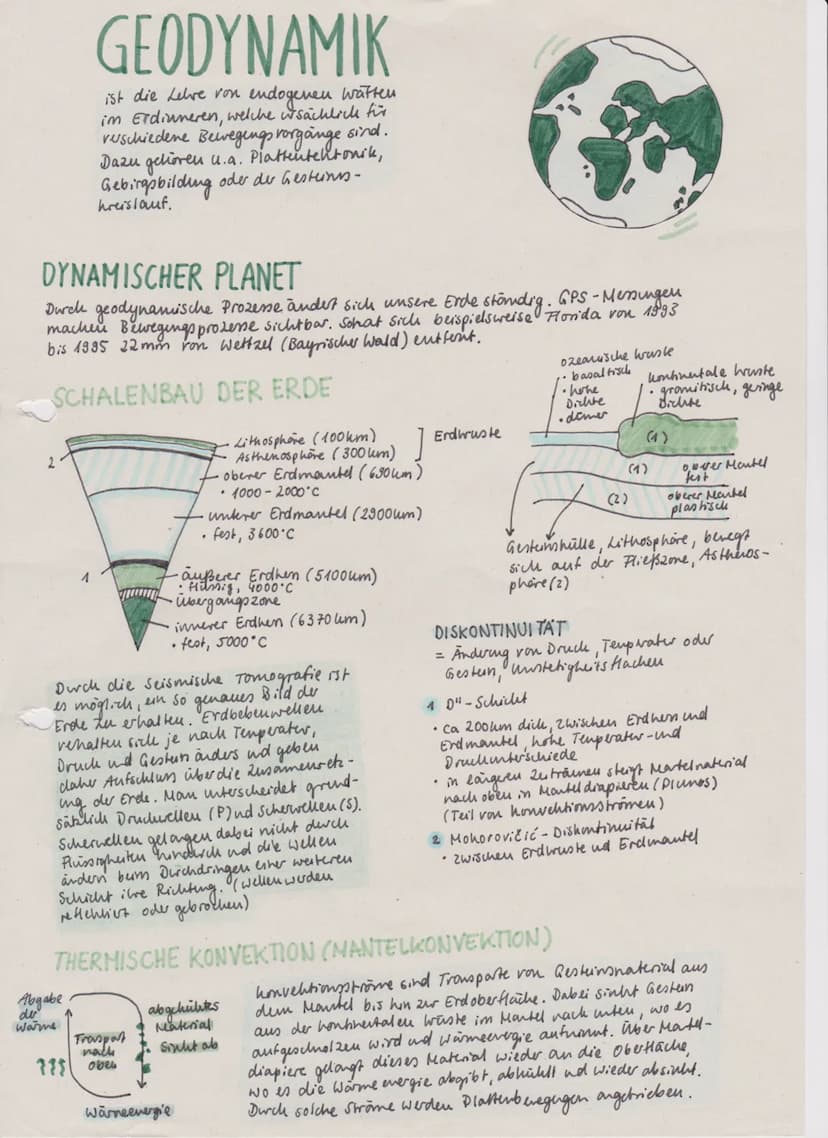 GEODYNAMIK
ist die Lehre von endogenen Kräften
im Erdinneren, welche ursächlich für
verschiedene Bewegungsvorgänge sind.
Dazu gehören u.a. Plattentektonik,
Gebirgsbildung oder der Gesteins-
kreislauf.
DYNAMISCHER PLANET
Durch geodynamische Prozesse ändert sich unsere Erde ständig. GPS-Messungen
machen Bewegungsprozesse sichtbar. So hat sich beispielsweise Florida von 1993
bis 1995 22mm von Wettzel (Bayrischer Wald) entfernt.
SCHALENBAU DER ERDE
2
1
Lithosphäre (100km)
Asthenosphäre (300km)
Erdkruste
oberer Erdmantel (690km)
• 1000-2000°C
unterer Erdmantel (2900km)
• fest, 3600°C
äußerer Erdkern (5100km)
• flüssig, 4000°C
Übergangszone
innerer Erdkern (6370km)
• fest, 5000°C
ozeanische Kruste
• basaltisch
• hohe
Dichte
• dünner
kontinentale Kruste
• granitisch, geringe
Dichte
(1)
(1) oberer Mantel
fest
(2) oberer Mantel
plastisch
Gesteinshülle, Lithosphäre, bewegt
sich auf der Fließzone, Asthenos-
phäre (2)
Durch die seismische Tomografie ist
es möglich, ein so genaues Bild der
Erde zu erhalten. Erdbebenwellen
verhalten sich je nach Temperatur,
Druck und Gestein anders und geben
daher Aufschluss über die Zusammensetz-
ung der Erde. Man unterscheidet grund-
sätzlich Druckwellen (P) und Scherwellen (S).
Scherwellen gelangen dabei nicht durch
Flüssigkeiten hindurch und die Wellen
ändern beim Durchdringen einer weiteren
Schicht ihre Richtung. (Wellen werden
reflektiert oder gebrochen)
DISKONTINUITÄT
= Änderung von Druck, Temperatur oder
Gestein, Unstetigkeitsflächen
1 D"-Schicht
• ca 200km dick, zwischen Erdkern und
Erdmantel, hohe Temperatur- und
Druckunterschiede
• in längeren Zeiträumen steigt Mantelmaterial
nach oben in Manteldiapiren (Plumes)
(Teil von Konvektionsströmen)
2 Mohorovičić-Diskontinuität
• zwischen Erdkruste und Erdmantel
THERMISCHE KONVEKTION (MANTELKONVEKTION)
Abgabe
der
Wärme
Transport
nach
oben
abgekühltes
Material
sinkt ab
Wärmeenergie
Konvektionsströme sind Transporte von Gesteinsmaterial aus
dem Mantel bis hin zur Erdoberfläche. Dabei sinkt Gestein
aus der kontinentalen Kruste im Mantel nach unten, wo es
aufgeschmolzen wird und Wärmeenergie aufnimmt. Über Mantel-
diapiere gelangt dieses Material wieder an die Oberfläche,
wo es die Wärmeenergie abgibt, abkühlt und wieder absinkt.
Durch solche Ströme werden Plattenbewegungen angetrieben.